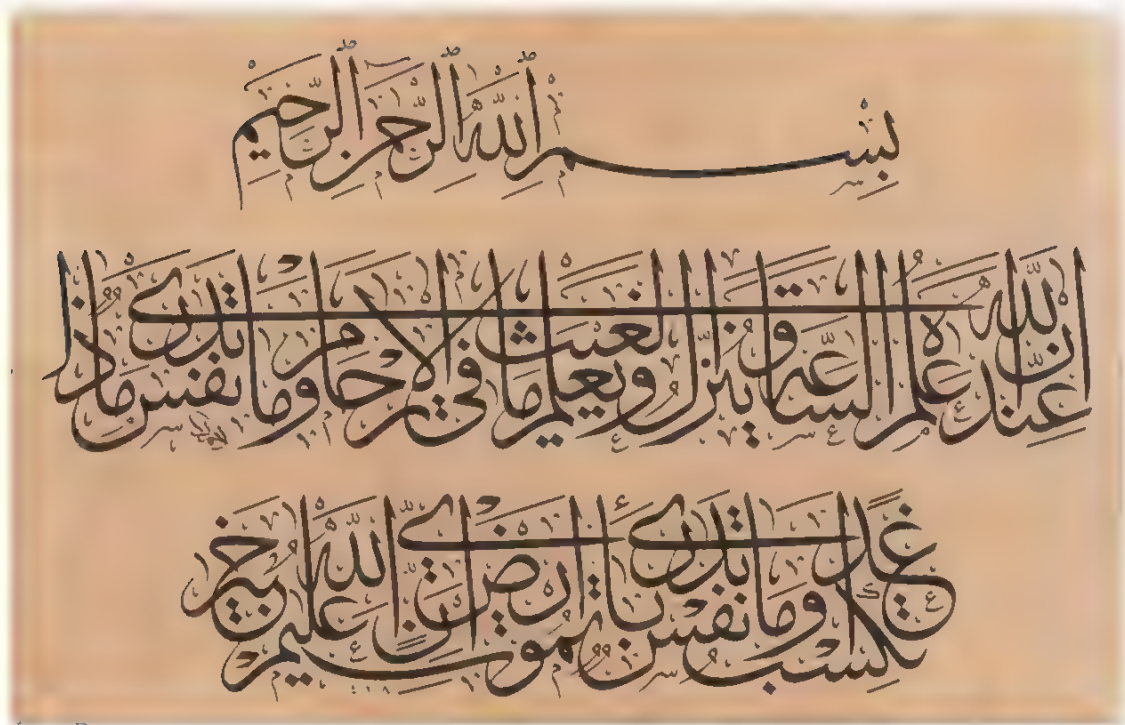 بِسْمِ ٱللَّهِ ٱلرَّحْمَٰنِ ٱلرَّحِيمِ
إِنَّ اللَّهَ عِندَهُ عِلْمُ السَّاعَةِ وَيُنَزِّلُ الْغَيْثَ وَيَعْلَمُ مَا فِي الْأَرْحَامِ وَمَا تَدْرِي نَفْسٌ مَاذَا
تَكْسِبُ غَدًا وَمَا تَدْرِي نَفْسٌ بِأَيِّ أَرْضٍ تَمُوتُ إِنَّ اللَّهَ عَلِيمٌ خَبِيرٌ